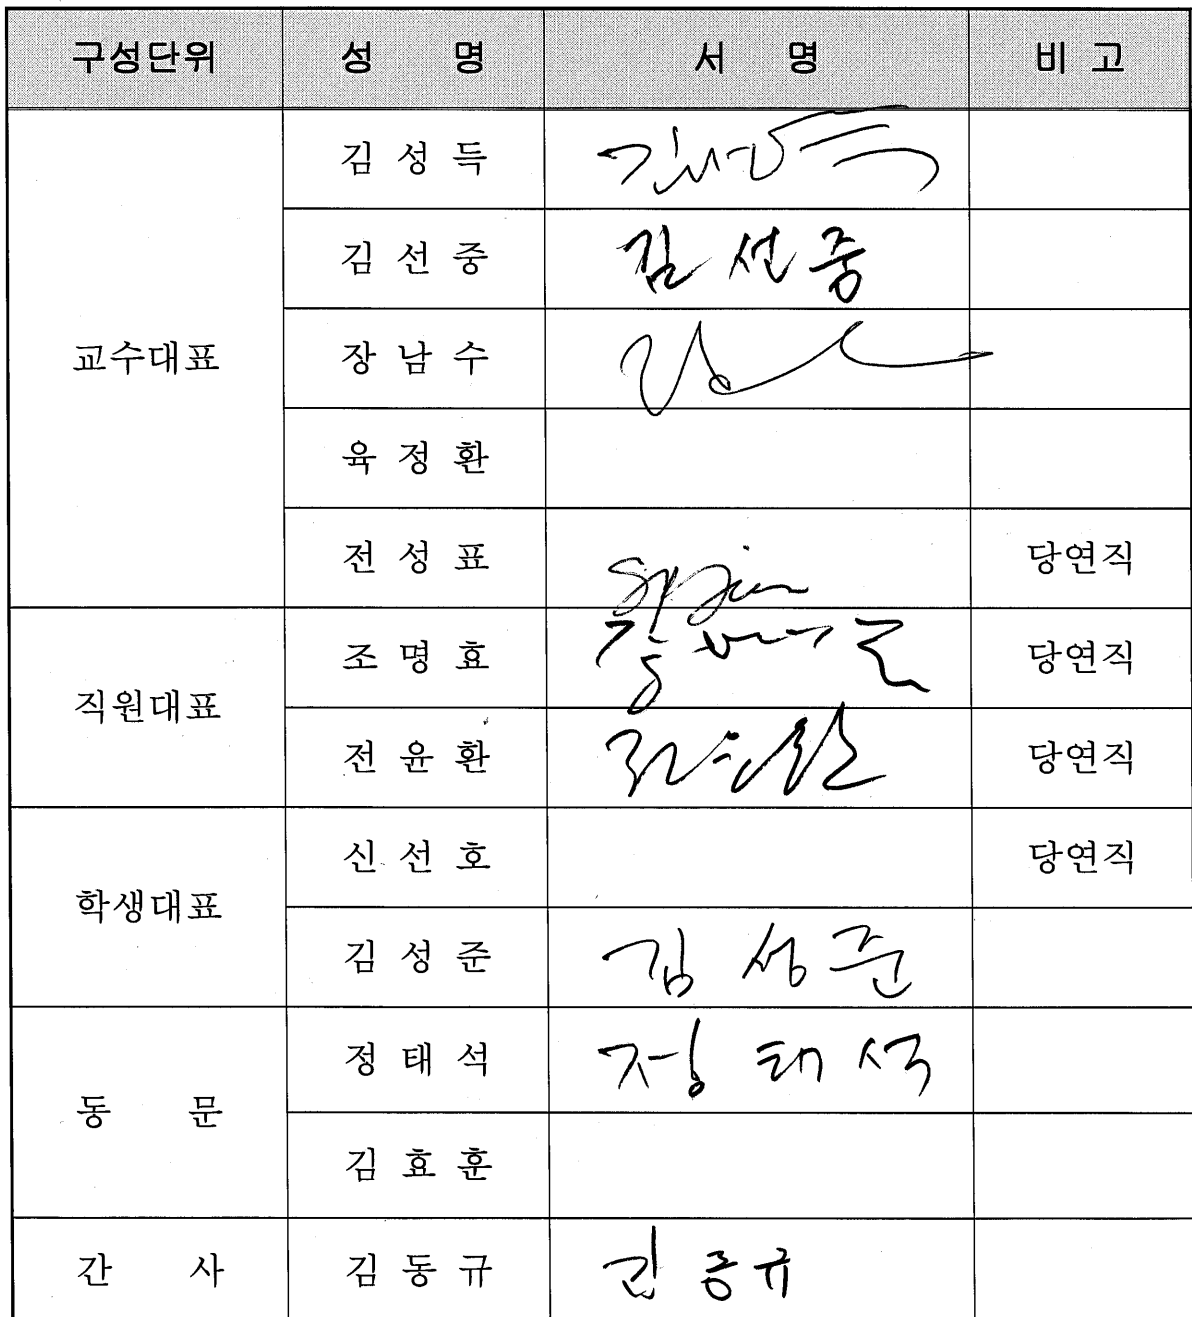 구성단위 성 명 서 명 비 고
교수대표
김 성 득
김 선 중 김 선 중
장 남 수
육 정 환
전 성 표 당연직
직원대표
조 명 효 당연직
전 윤 환 당연직
학생대표
신 선 호 당연직
김 성 준 김 성 준
동 문
정 태 석 정 태 석
김 효 훈
간 사 김 동 규 김 동 규